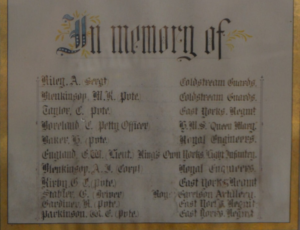 In memory of
Riley, A. Sergt. Coldstream Guards.
Blenkinsop, M.R. Pvte. Coldstream Guards.
Taylor, C. Pvte. East Yorks. Regmt
Moreland, C. Petty Officer. H.M.S. Queen Mary.
Baker, H. Pvte. Royal Engineers.
England, G.W. Lieut. King's Own Yorks Light Infantry.
Blenkinsop, A.J. Corpl. Royal Engineers.
Kirby G Pvte. East Yorks. Regmt
Gunner. Garrison Artillery.
Gardiner, R. Pvte. East York's Regmt
Parkinson, G. Pvte. East Yorks Regmt